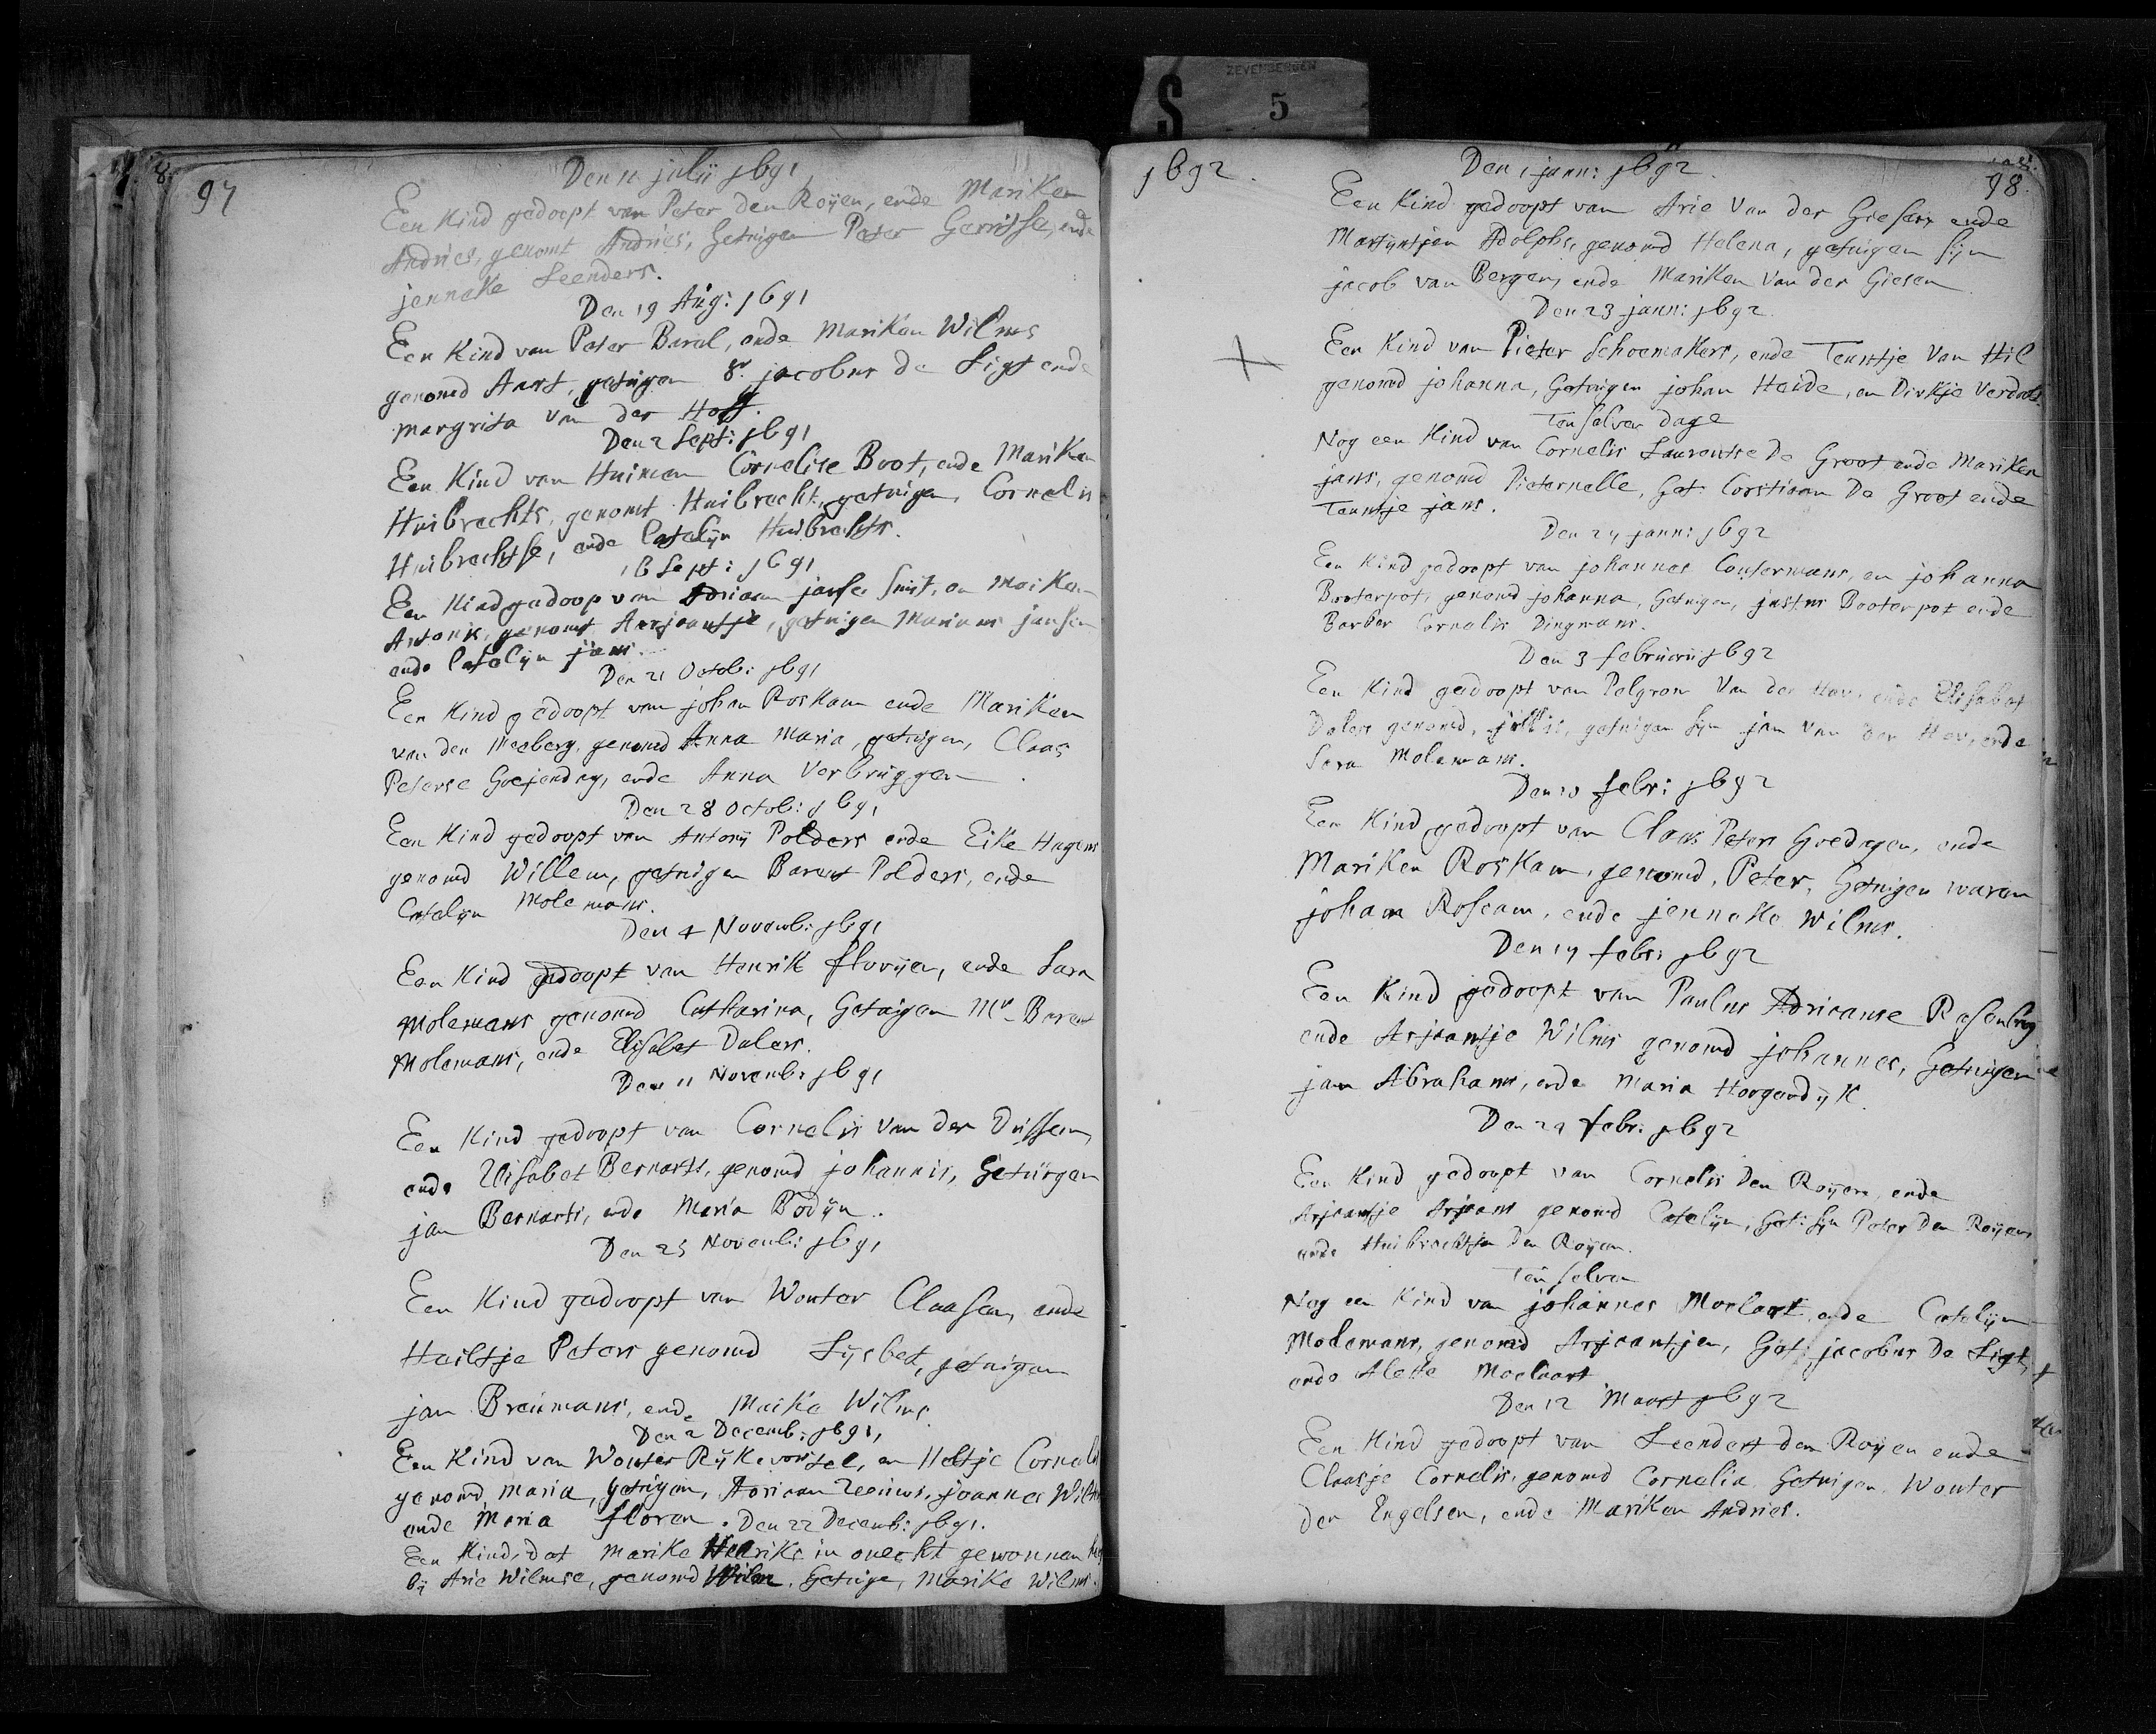 ZEVENBERGEN
S 5
97
Den 11 julii 1691
Een Kind gedoopt van Peter den Roijen, ende Mariken
Andries, genomt Andries, Getuigen Peter Gerritse, ende
jenneke Leenders.
Den 19 Aug: 1691
Een Kind van Peter Baral, ende Mariken Wilms
genomd Aart, getuigen Sr. jacobus de Ligt ende
margrita van der Hoff.
Den 2 Sept: 1691
Een Kind van Huiman Cornelise Boot, ende Mariken
Huibrechts, genomt Huibrecht, getuigen, Cornelis
Huibrechtse, ende Catelijn Huibrechts.
16 Sept: 1691
Een Kind gedoop van Adriaan janse Smit, en Maiken
Antonis, genomt Arjaantje, getuigen Marinus jansen
ende Catelijn jans.
Den 21 Octob: 1691
Een Kind gedoopt van johan Roskam ende Mariken
van den Meeberg, genomd Anna Maria, getuigen, Claas
Peterse Goejendag, ende Anna Verbruggen.
Den 28 Octob: 1691
Een Kind gedoopt van Antonij Polders ende Eike Hugens
genomd Willem, getuigen Barent Polders, ende
Catelijn Molemans.
Den 4 Novemb: 1691
Een Kind gedoopt van Henrik Floorijen, ende Sara
Molemans genomd Catharina, Getuigen Mr. Barent
Molemans, ende Elisabet Dalers.
Den 11 Novemb: 1691
Een Kind gedoopt van Cornelis van der Dussen,
ende Elisabet Bernarts, genomd johannis, Getuigen
jan Bernarts, ende Maria Bodijn.
Den 25 Novemb: 1691
Een Kind gedoopt van Wouter Claasen, ende
Heiltje Peters genomd Lijsbet, getuigen
jan Breumans, ende Maike Wilms.
Den 2 Decemb: 1691,
Een Kind van Wouter Rijkevorsel, en Heltje Cornelis
genomd maria, getuigen, Adriaan Leeuws, joannes Wilms
ende Maria floren. Den 22 Decemb: 1691.
Een Kind, dat Marike Henriks in onecht gewonnen
bij Arie Wilmse, genomd Wilm. Getuige, Marike Wilms.
1692.
98.
Den 1 jann: 1692.
Een Kind gedoopt van Arie Van der Giesen, ende
Martijntjen Adolphs, genomd Helena, getuigen sijn
jacob van Bergen, ende Mariken Van der Giesen
Den 23 jann: 1692.
Een Kind van Pieter Schoemakers, ende Teuntje Van Hil
genomd johanna, Getuigen johan Heide, en Dirkje Verdoes.
Ten selven dage
Nog een Kind van Cornelis Laurentse De Groot ende Mariken
jans, genomd Pieternelle, Get: Corstiaan De Groot ende
Teuntje jans.
Den 24 jann: 1692
Een Kind gedoopt van johannes Coutermans, en johanna
Booterpot, genomd johanna, Getuigen, justus Booterpot ende
Barber Cornelis Dingmans.
Den 3 februarij 1692
Een Kind gedoopt van Pelgrom Van der Hav, ende Elisabet
Dalers genomd, getuigen sijn jan Van der Hav, ende
Sara Molemans.
Den 10 febr: 1692
Een Kind gedoopt van Claas Peters Goedagen, ende
Mariken Roskam, genomd, Peter, Getuigen waren
johan Roscam, ende jenneke Wilms.
Den 17 febr: 1692
Een Kind gedoopt van Paulus Adrianse Rosenberg
ende Arjaantje Wilms genomd johannes, Getuigen
jan Abrahams, ende Maria Hoogendijk.
Den 24 febr: 1692
Een Kind gedoopt van Cornelis Den Roijen, ende
Arjaantje Arjaans genomd Catelijn, Get: sijn Peter Den Roijen
ende Huibrechtje Den Roijen.
Ten selven
Nog een Kind van johannes Moelaart, ende Catelijn
Molemans, genomd Arjaantjen, Get: jacobus De Ligt,
ende Alette Moelaart
Den 12 Maart 1692
Een Kind gedoopt van Leendert den Roijen ende
Claasje Cornelis, genomd Cornelia Getuigen. Wouter
den Engelsen, ende Mariken Andries.